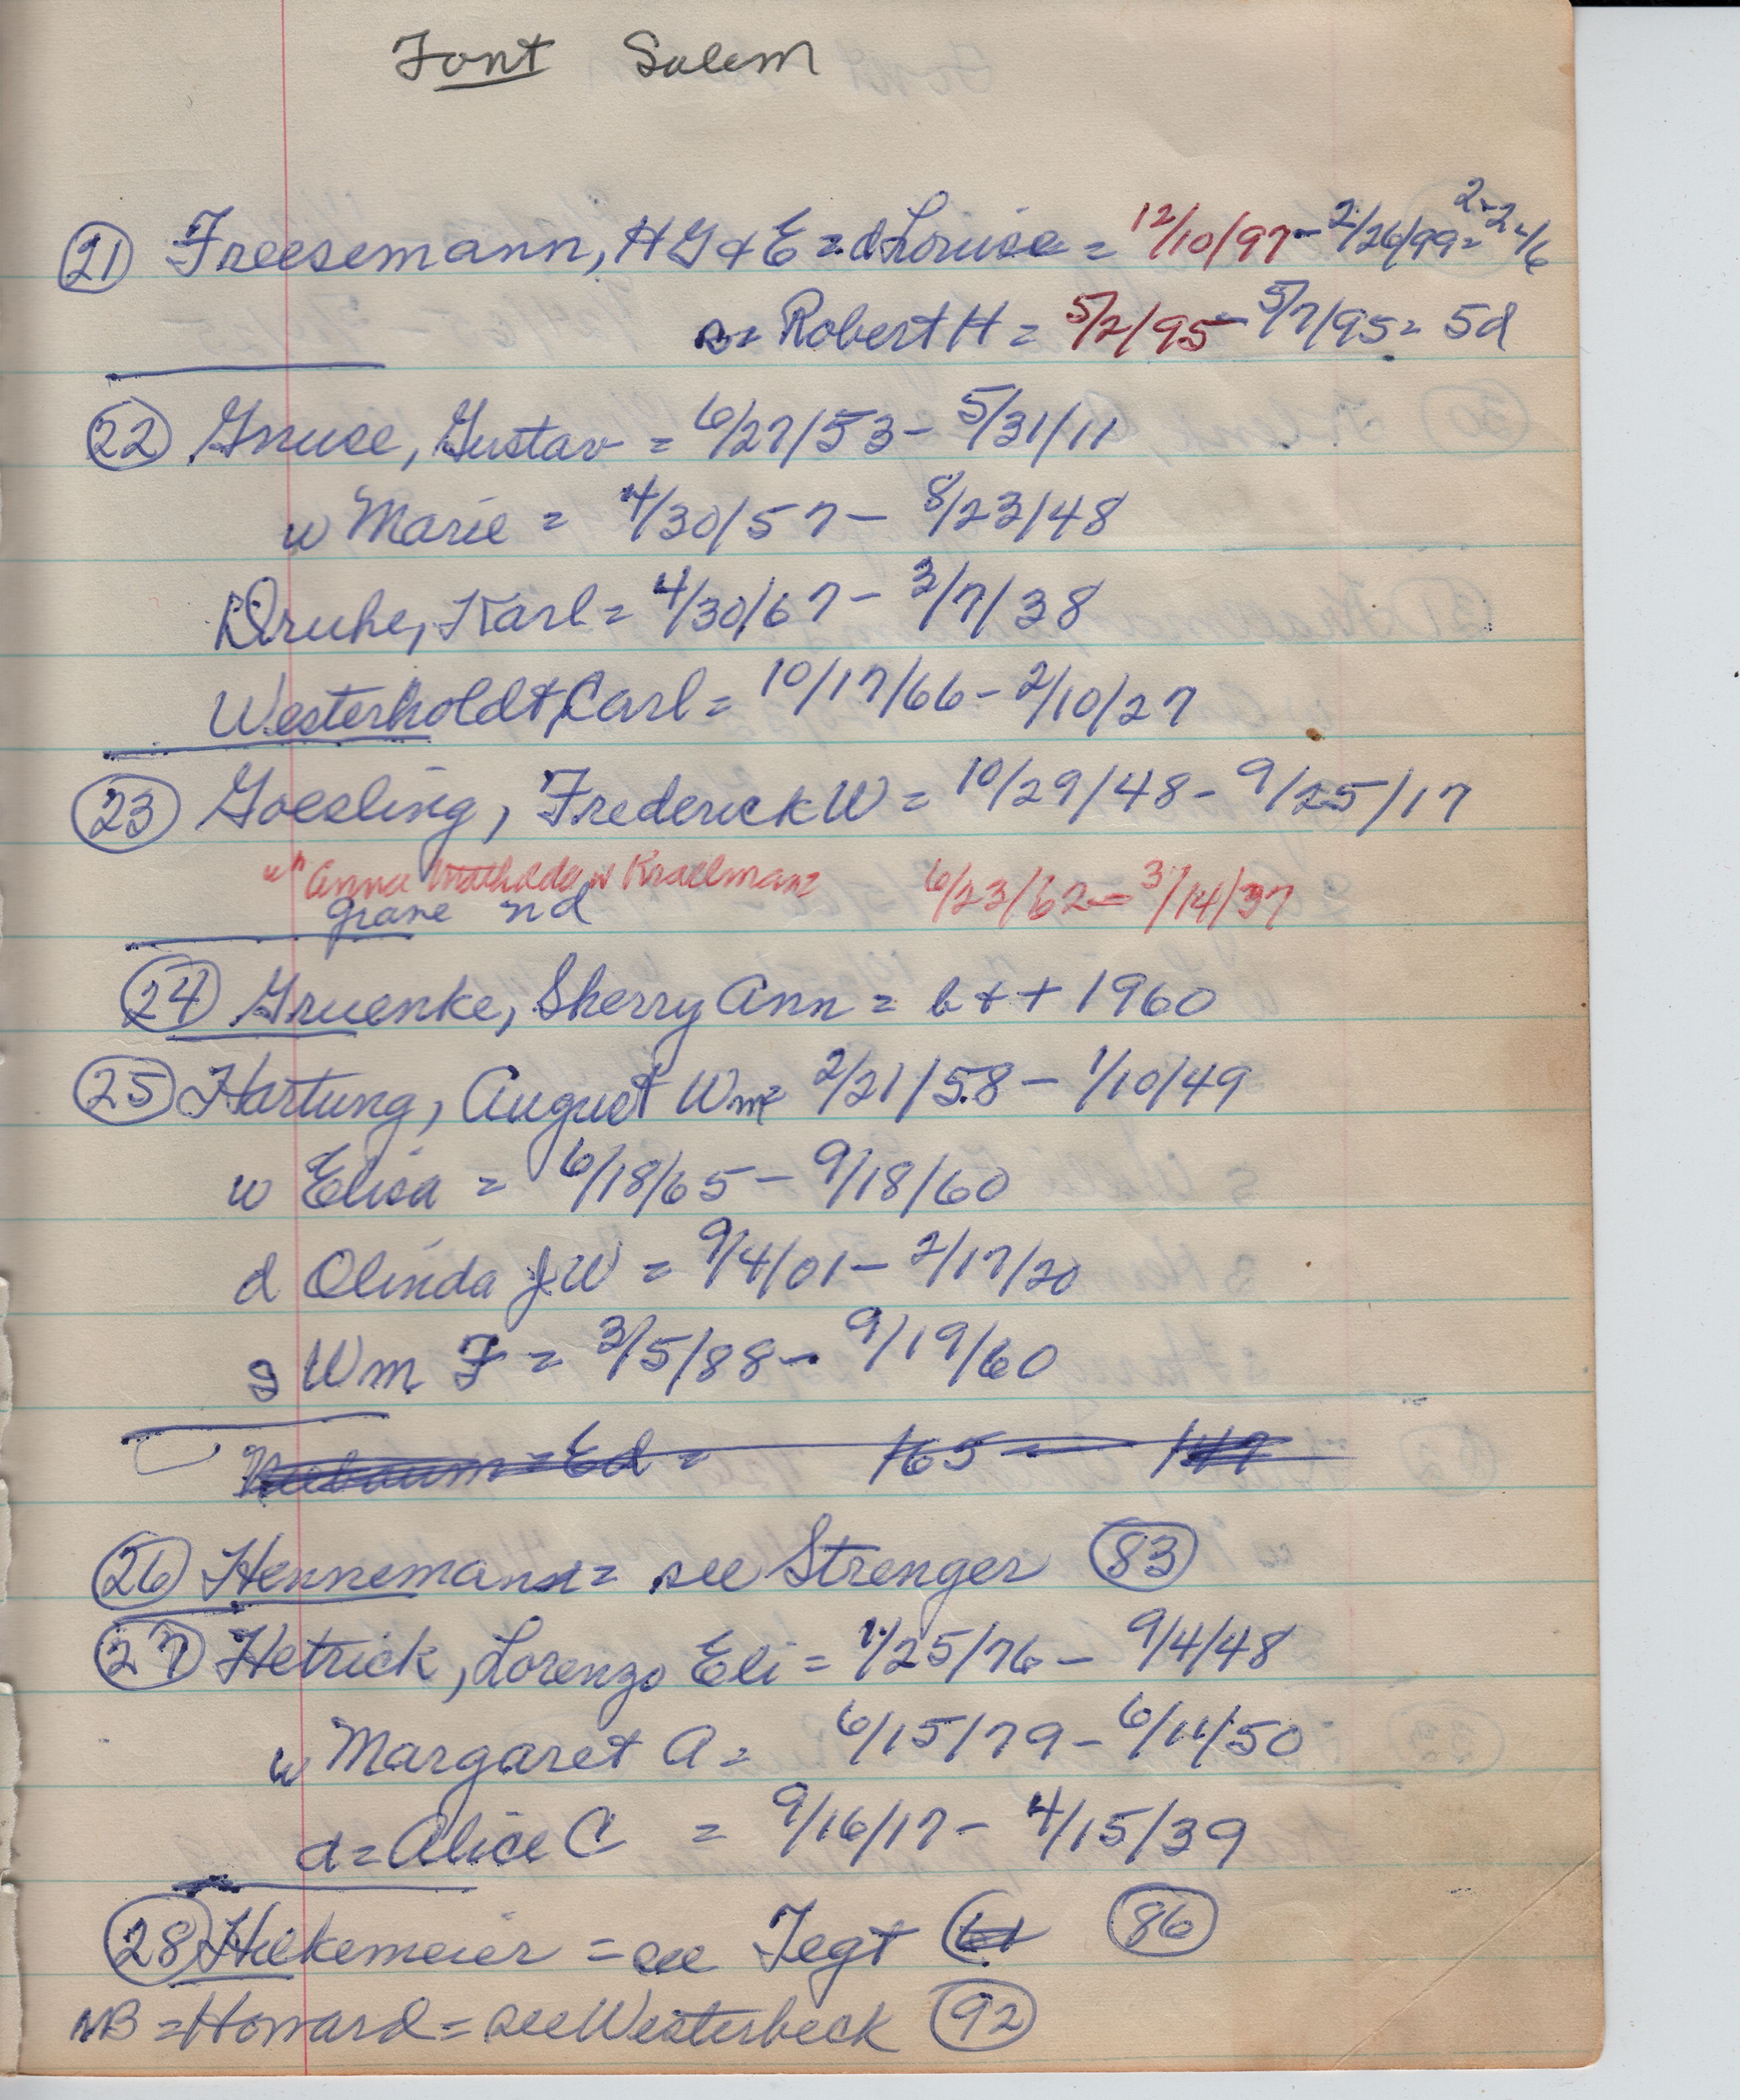 Font Salem
21 Freesemann, HG & E = d Louise = 12/10/97 - 2/26/99 = 2-2-/6
s = Robert H = 5/2/95 - 5/7/95 = 5d
22 Gnuse, Gustav = 6/27/53 - 5/31/11
w Marie = 4/30/57 - 8/23/48
Druhe, Karl = 4/30/67 - 3/7/38
Westerholdt, Carl = 10/17/66 - 2/10/27
23 Goesling, Frederick W = 10/29/48 - 9/25/17
"" Anna Mathilda w Knallmann 6/23/62 - 3/14/37
grave nd
24 Gruenke, Sherry Ann = b + + 1960
25 Hartung, August Wm = 2/21/58 - 1/10/49
w Elisa = 6/18/65 - 9/18/60
d Olinda J.W = 9/4/01 - 2/17/20
s Wm F = 3/5/88 - 9/19/60
Ed = 165 -
26 Hennemann = see Strenger 83
27 Hetrick, Lorenzo Eli = 1/25/76 - 9/4/48
w Margaret A = 6/15/79 - 6/11/50
d = Alice C = 9/16/17 - 4/15/39
28 Hiekemeier = see Tegt 86
NB = Homard = see Westerbeck 92